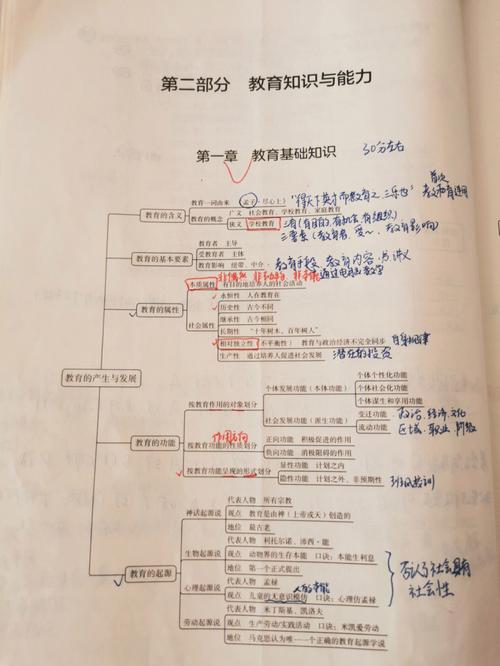 第二部分 教育知识与能力
第一章 教育基础知识 30分左右
教育一词由来 《孟子·尽心上》 "得天下英才而教育之,三乐也" 首次
教育的含义 教育的概念 广义 社会教育、学校教育、家庭教育
狭义 学校教育 三有(有目的有计划有组织)
三要素(教育者、受~、教育影响)
教育者 主导
教育的基本要素 受教育者 主体
教育影响 纽带、中介 教育手段 教育内容
本质属性 有目的地培养人的社会活动
永恒性 人在教育在
历史性 古今不同
教育的属性 继承性 古今相同
社会属性 长期性 "十年树木,百年树人"
相对独立性(不平衡性) 教育与政治经济不完全同步
生产性 通过培养人促进社会发展 潜在的投资
教育的产生与发展
个体个性化功能
个体发展功能(本体功能) 个体社会化功能
按教育作用的对象划分 个体谋生和享用功能
社会发展功能(派生功能) 变迁功能 政治、经济、文化
流动功能 区域、职业、阶级
作用方向
教育的功能 按教育功能的性质划分 正向功能 积极促进的作用
负向功能 消极阻碍的作用
按教育功能呈现的形式划分 显性功能 计划之内
隐性功能 计划之外、非预期性
代表人物 所有宗教
神话起源说 观点 教育是由神(上帝或天)创造的
地位 最古老
代表人物 利托尔诺、沛西·能
生物起源说 观点 动物界的生存本能 口诀:本能生利息
地位 第一个正式提出
教育的起源 否认了社会具有
社会性
心理起源说 代表人物 孟禄
人的本能
观点 儿童的无意识模仿 口诀:心理仿孟禄
代表人物 米丁斯基、凯洛夫
劳动起源说 观点 生产劳动/实践活动 口诀:米凯爱劳动
地位 马克思认为唯一一个正确的教育起源学说